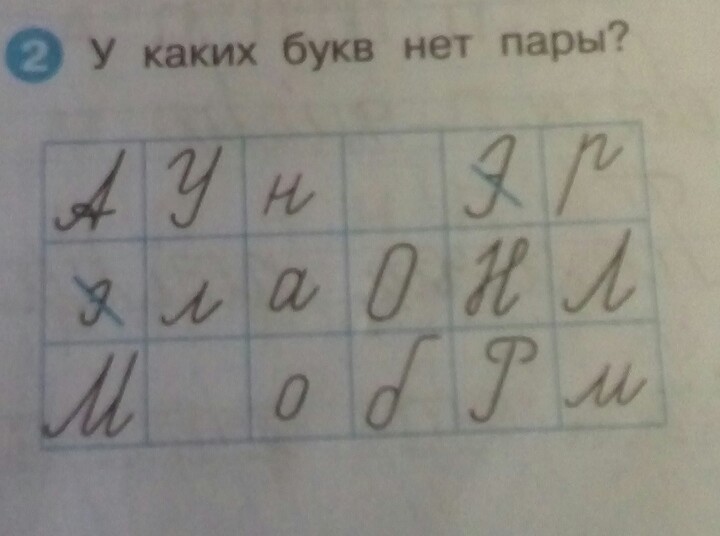 2 У каких букв нет пары?
А У н Э р
э л а О Н Л
М о б Р м